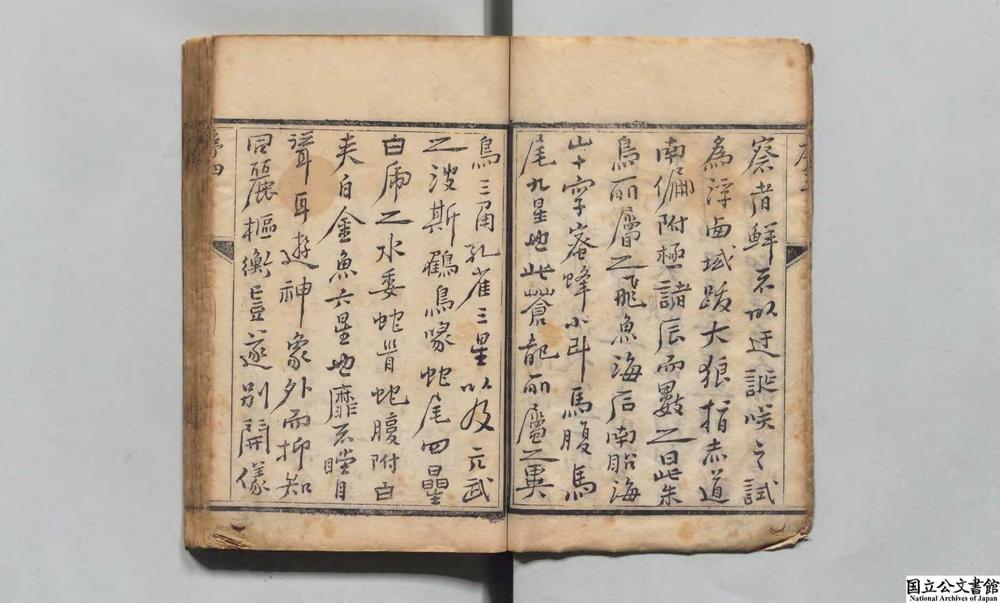 序三
察者鮮不以迂誕咲之試
為浮鹵域跋大狼指赤道
南偏附極諸辰而數之曰此朱
鳥所屬之飛魚海石南船海
山十字蜜蜂小斗馬腹馬
尾九星也此蒼龍所屬之異
鳥三角孔雀三星以及元武
之波斯鶴鳥喙蛇尾四星
白虎之水委蛇首蛇腹附白
夾白金魚六星也靡不瞠目
聳耳遊神象外而抑知
麗樞衡遂別開儀
序四
国立公文書館
National Archives of Japan